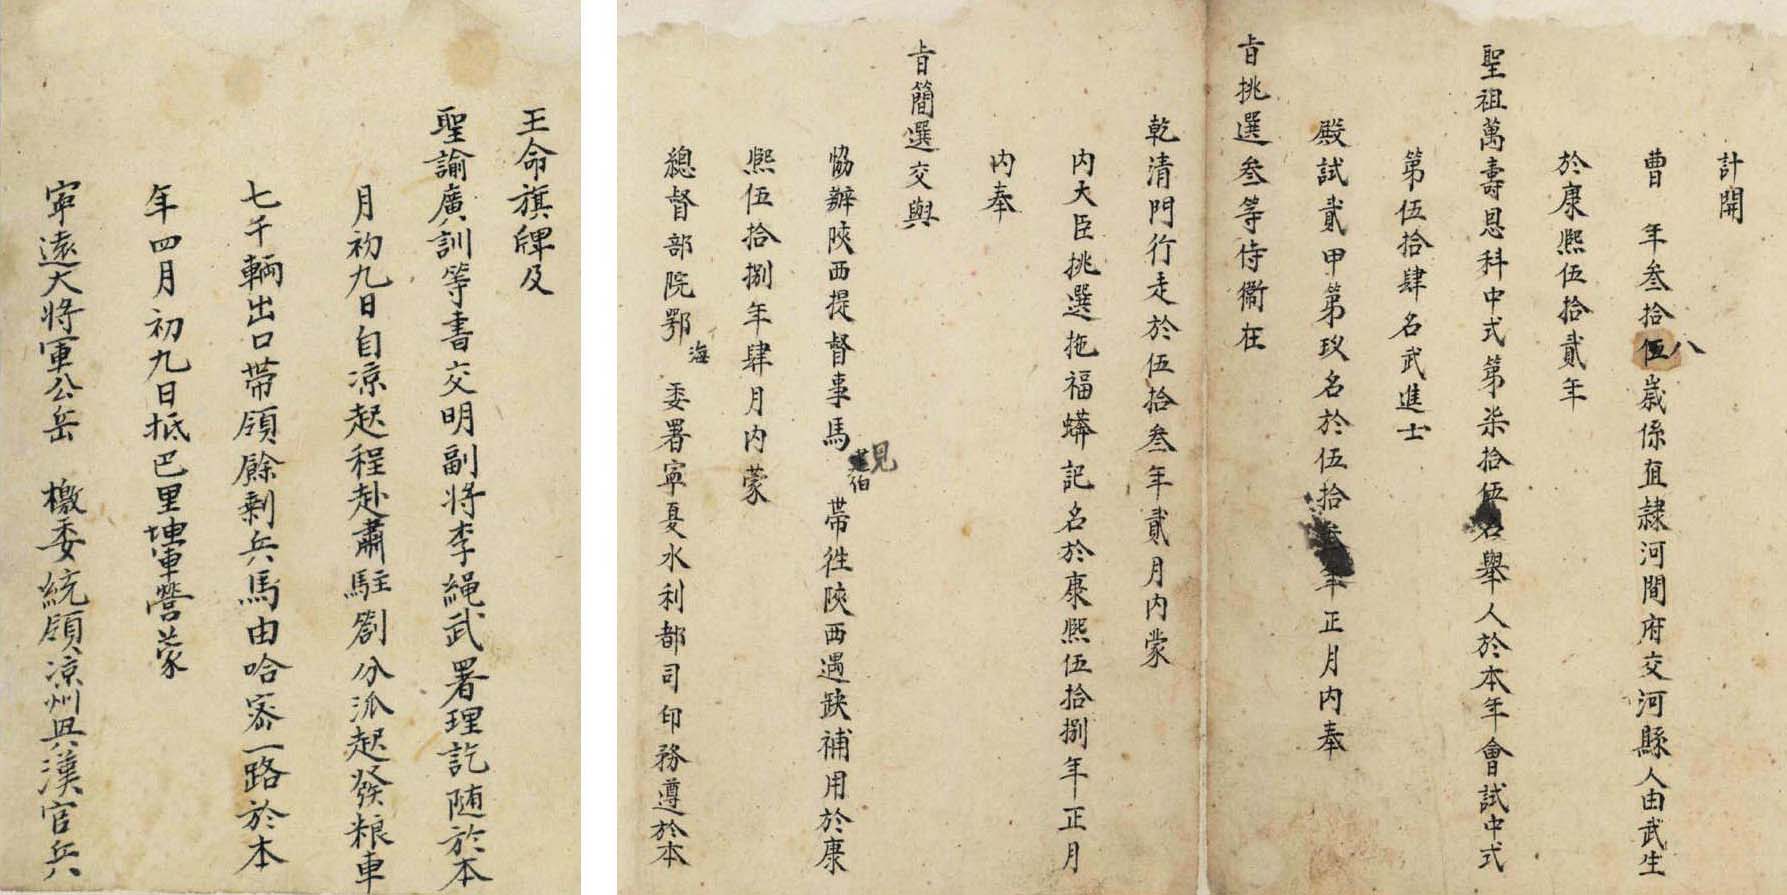 計開
曹　年叁拾伍八歲係直隸河間府交河縣人由武生
於康熙伍拾貳年
聖祖萬壽恩科中式第柒拾伍名舉人於本年會試中式
第伍拾肆名武進士
殿試貳甲第玖名於伍拾叁年正月內奉
旨挑選叁等侍衛在
乾清門行走於伍拾叁年貳月內蒙
內大臣挑選拖福蟒記名於康熙伍拾捌年正月
內奉
旨簡選交與
恊辦陝西提督事馬見伯帶徃陝西遇缺補用於康
熙伍拾捌年肆月內蒙
總督部院鄂海委署寧夏水利都司印務遵於本
王命旗牌及
聖諭廣訓等書交明副將李繩武署理訖随於本
月初九日自凉起程赴肅駐劄分派起發粮車
七千輛出口帶領餘剩兵馬由哈宻一路於本
年四月初九日抵巴里坤軍營蒙
寧遠大將軍公岳　檄委統領凉州與漢官兵